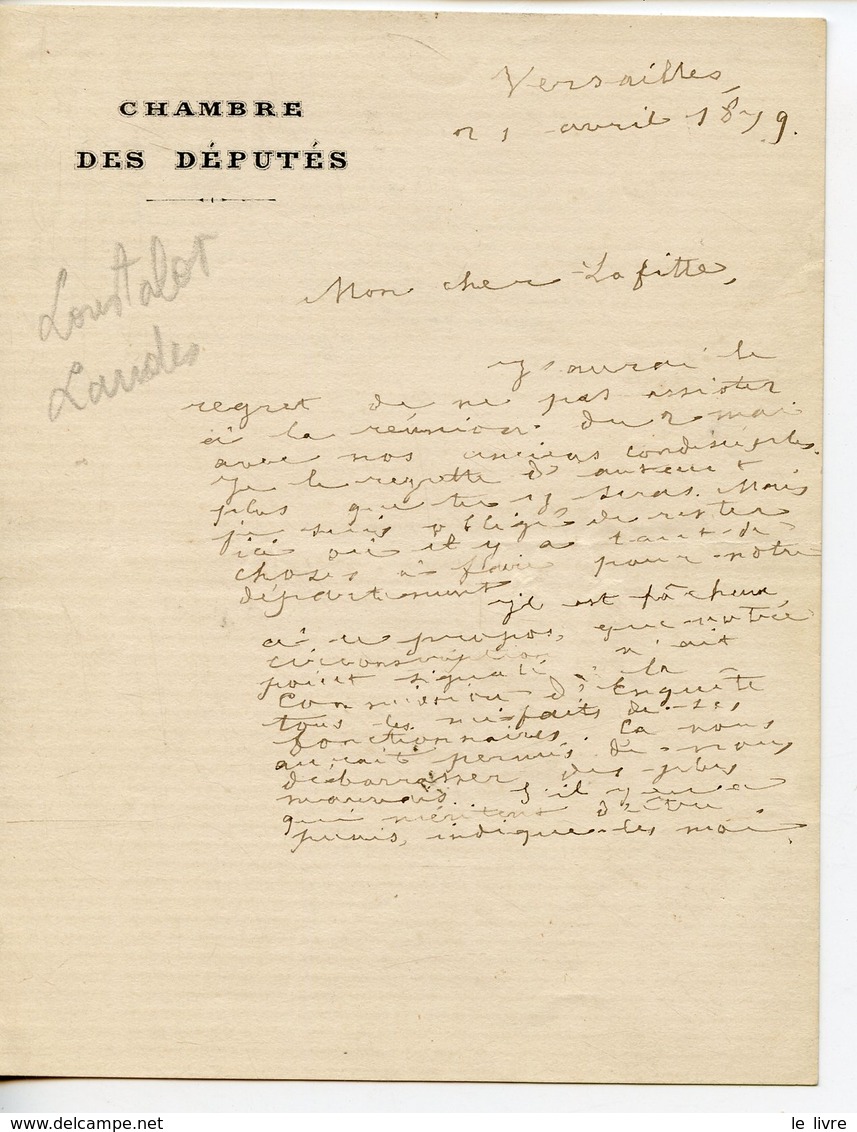 CHAMBRE
DES DÉPUTÉS
Versailles,
21 avril 1879.
Loustalot
Landes
Mon cher Lafitte,
J'aurai le
regret de ne pas assister
à la réunion du 2 mai
avec nos anciens condisciples.
Je le regrette d'autant
plus que tu y seras. Mais
je suis obligé de rester
ici où il y a tant de
choses à faire pour notre
département.
Il est fâcheux,
à ce propos, que notre
circonscription n'ait
point signalé à la
Commission d'Enquête
tous les méfaits de ses
fonctionnaires. Ca nous
aurait permis de nous
débarrasser des plus
mauvais. S'il y en a
qui méritent d'être
punis, indique-les moi
le livre